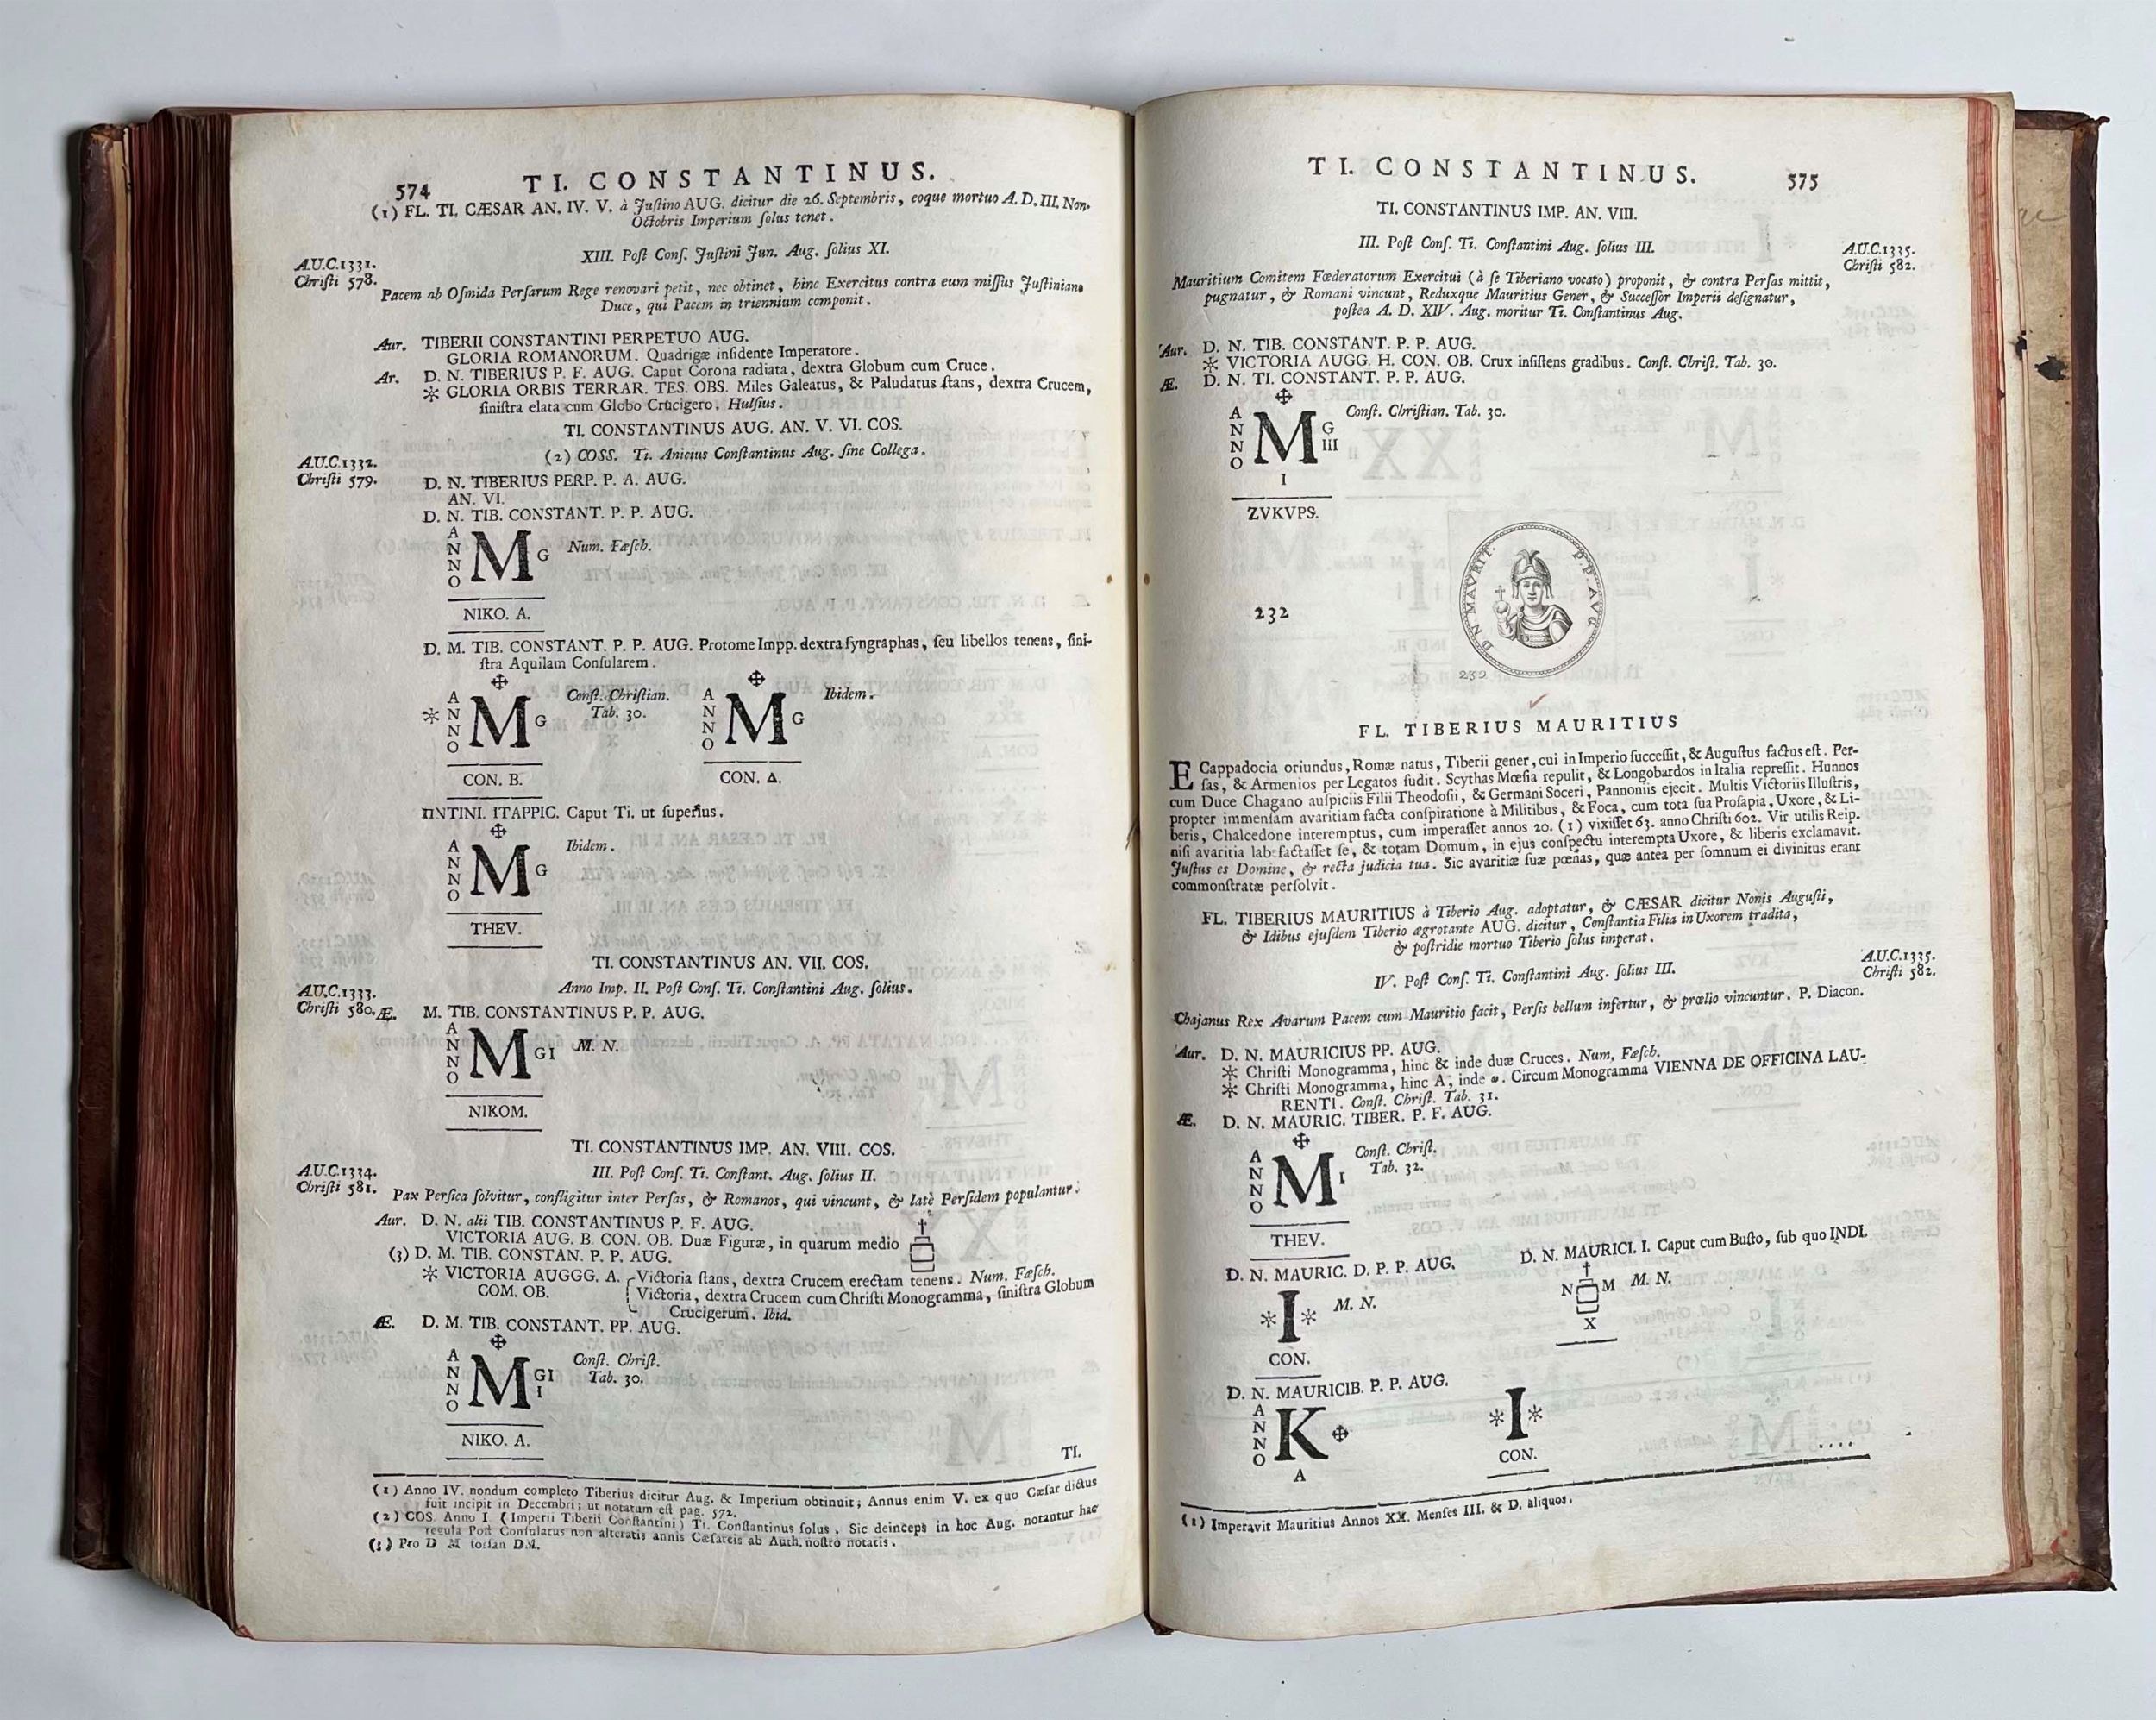 574 TI. CONSTANTINUS.
(1) FL. TI. CÆSAR AN. IV. V. à Juſtino AUG. dicitur die 26. Septembris, eoque mortuo A. D. III. Non.
Octobris Imperium ſolus tenet.
XIII. Poſt Conſ. Juſtini Jun. Aug. ſolius XI.
A.U.C.1331.
Chriſti 578.
Pacem ab Oſmida Perſarum Rege renovari petit, nec obtinet, hinc Exercitus contra eum miſſus Juſtiniano
Duce, qui Pacem in triennium componit.
Aur. TIBERII CONSTANTINI PERPETUO AUG.
GLORIA ROMANORUM. Quadrigæ inſidente Imperatore.
Ar. D. N. TIBERIUS P. F. AUG. Caput Corona radiata, dextra Globum cum Cruce.
* GLORIA ORBIS TERRAR. TES. OBS. Miles Galeatus, & Paludatus ſtans, dextra Crucem,
ſiniſtra elata cum Globo Crucigero. Hulſius.
TI. CONSTANTINUS AUG. AN. V. VI. COS.
(2) COSS. Ti. Anicius Conſtantinus Aug. ſine Collega.
A.U.C.1332.
Chriſti 579.
D. N. TIBERIUS PERP. P. A. AUG.
AN. VI.
D. N. TIB. CONSTANT. P. P. AUG.
ANNO M G Num. Fæſch.
NIKO. A.
D. M. TIB. CONSTANT. P. P. AUG. Protome Impp. dextra ſyngraphas, ſeu libellos tenens, ſini-
ſtra Aquilam Conſularem.
* ANNO M G Conſt. Chriſtian. Tab. 30. ANNO M G Ibidem.
CON. B. CON. Δ.
TINTINI. ITAPPIC. Caput Ti. ut ſuperius.
ANNO M G Ibidem.
THEV.
TI. CONSTANTINUS AN. VII. COS.
Anno Imp. II. Poſt Conſ. Ti. Conſtantini Aug. ſolius.
A.U.C.1333.
Chriſti 580.
Æ. M. TIB. CONSTANTINUS P. P. AUG.
ANNO M GI M. N.
NIKOM.
TI. CONSTANTINUS IMP. AN. VIII. COS.
III. Poſt Conſ. Ti. Conſtant. Aug. ſolius II.
A.U.C.1334.
Chriſti 581.
Pax Perſica ſolvitur, confligitur inter Perſas, & Romanos, qui vincunt, & latè Perſidem populantur.
Aur. D. N. alii TIB. CONSTANTINUS P. F. AUG.
VICTORIA AUG. B. CON. OB. Duæ Figuræ, in quarum medio
(3) D. M. TIB. CONSTAN. P. P. AUG.
* VICTORIA AUGGG. A. Victoria ſtans, dextra Crucem erectam tenens. Num. Fæſch.
COM. OB. Victoria, dextra Crucem cum Chriſti Monogramma, ſiniſtra Globum
Crucigerum. Ibid.
Æ. D. M. TIB. CONSTANT. PP. AUG.
ANNO M GI I Conſt. Chriſt. Tab. 30.
NIKO. A.
TI.
(1) Anno IV. nondum completo Tiberius dicitur Aug. & Imperium obtinuit; Annus enim V. ex quo Cæſar dictus
fuit incipit in Decembri; ut notatum eſt pag. 572.
(2) COS. Anno I. (Imperii Tiberii Conſtantini) Ti. Conſtantinus ſolus. Sic deinceps in hoc Aug. notantur hac
regula Poſt Conſulatus non alteratis annis Cæſareis ab Auth. noſtro notatis.
(3) Pro D M forſan DM.
TI. CONSTANTINUS. 575
TI. CONSTANTINUS IMP. AN. VIII.
III. Poſt Conſ. Ti. Conſtantini Aug. ſolius III.
A.U.C.1335.
Chriſti 582.
Mauritium Comitem Fœderatorum Exercitui (à ſe Tiberiano vocato) proponit, & contra Perſas mittit,
pugnatur, & Romani vincunt, Reduxque Mauritius Gener, & Succeſſor Imperii deſignatur,
poſtea A. D. XIV. Aug. moritur Ti. Conſtantinus Aug.
Aur. D. N. TIB. CONSTANT. P. P. AUG.
* VICTORIA AUGG. H. CON. OB. Crux inſiſtens gradibus. Conſt. Chriſt. Tab. 30.
Æ. D. N. TI. CONSTANT. P. P. AUG.
ANNO M G III Conſt. Chriſtian. Tab. 30.
I
ZVKVPS.
232
D N MAVRIT. P. P. AVG
230
FL. TIBERIUS MAURITIUS
E Cappadocia oriundus, Romæ natus, Tiberii gener, cui in Imperio ſucceſſit, & Auguſtus factus eſt. Per-
ſas, & Armenios per Legatos fudit. Scythas Mœſia repulit, & Longobardos in Italia repreſſit. Hunnos
cum Duce Chagano auſpiciis Filii Theodoſii, & Germani Soceri, Pannoniis ejecit. Multis Victoriis Illuſtris,
propter immenſam avaritiam facta conſpiratione à Militibus, & Foca, cum tota ſua Proſapia, Uxore, & Li-
beris, Chalcedone interemptus, cum imperaſſet annos 20. (1) vixiſſet 63. anno Chriſti 602. Vir utilis Reip.
niſi avaritia labefactaſſet ſe, & totam Domum, in ejus conſpectu interempta Uxore, & liberis exclamavit.
Juſtus es Domine, & recta judicia tua. Sic avaritiæ ſuæ pœnas, quæ antea per ſomnum ei divinitus erant
commonſtratæ perſolvit.
FL. TIBERIUS MAURITIUS à Tiberio Aug. adoptatur, & CÆSAR dicitur Nonis Auguſti,
& Idibus ejuſdem Tiberio ægrotante AUG. dicitur, Conſtantia Filia in Uxorem tradita,
& poſtridie mortuo Tiberio ſolus imperat.
IV. Poſt Conſ. Ti. Conſtantini Aug. ſolius III.
A.U.C.1335.
Chriſti 582.
Chajanus Rex Avarum Pacem cum Mauritio facit, Perſis bellum infertur, & prælio vincuntur. P. Diacon.
Aur. D. N. MAURICIUS PP. AUG.
* Chriſti Monogramma, hinc & inde duæ Cruces. Num. Fæſch.
* Chriſti Monogramma, hinc A, inde ω. Circum Monogramma VIENNA DE OFFICINA LAU-
RENTI. Conſt. Chriſt. Tab. 31.
Æ. D. N. MAURIC. TIBER. P. F. AUG.
ANNO M I Conſt. Chriſt. Tab. 32.
THEV.
D. N. MAURIC. D. P. P. AUG. D. N. MAURICI. I. Caput cum Buſto, ſub quo INDI.
*I* M. N. N M M. N.
CON. X
D. N. MAURICIB. P. P. AUG.
ANNO K *I*
A CON.
....
(1) Imperavit Mauritius Annos XX. Menſes III. & D. aliquos.